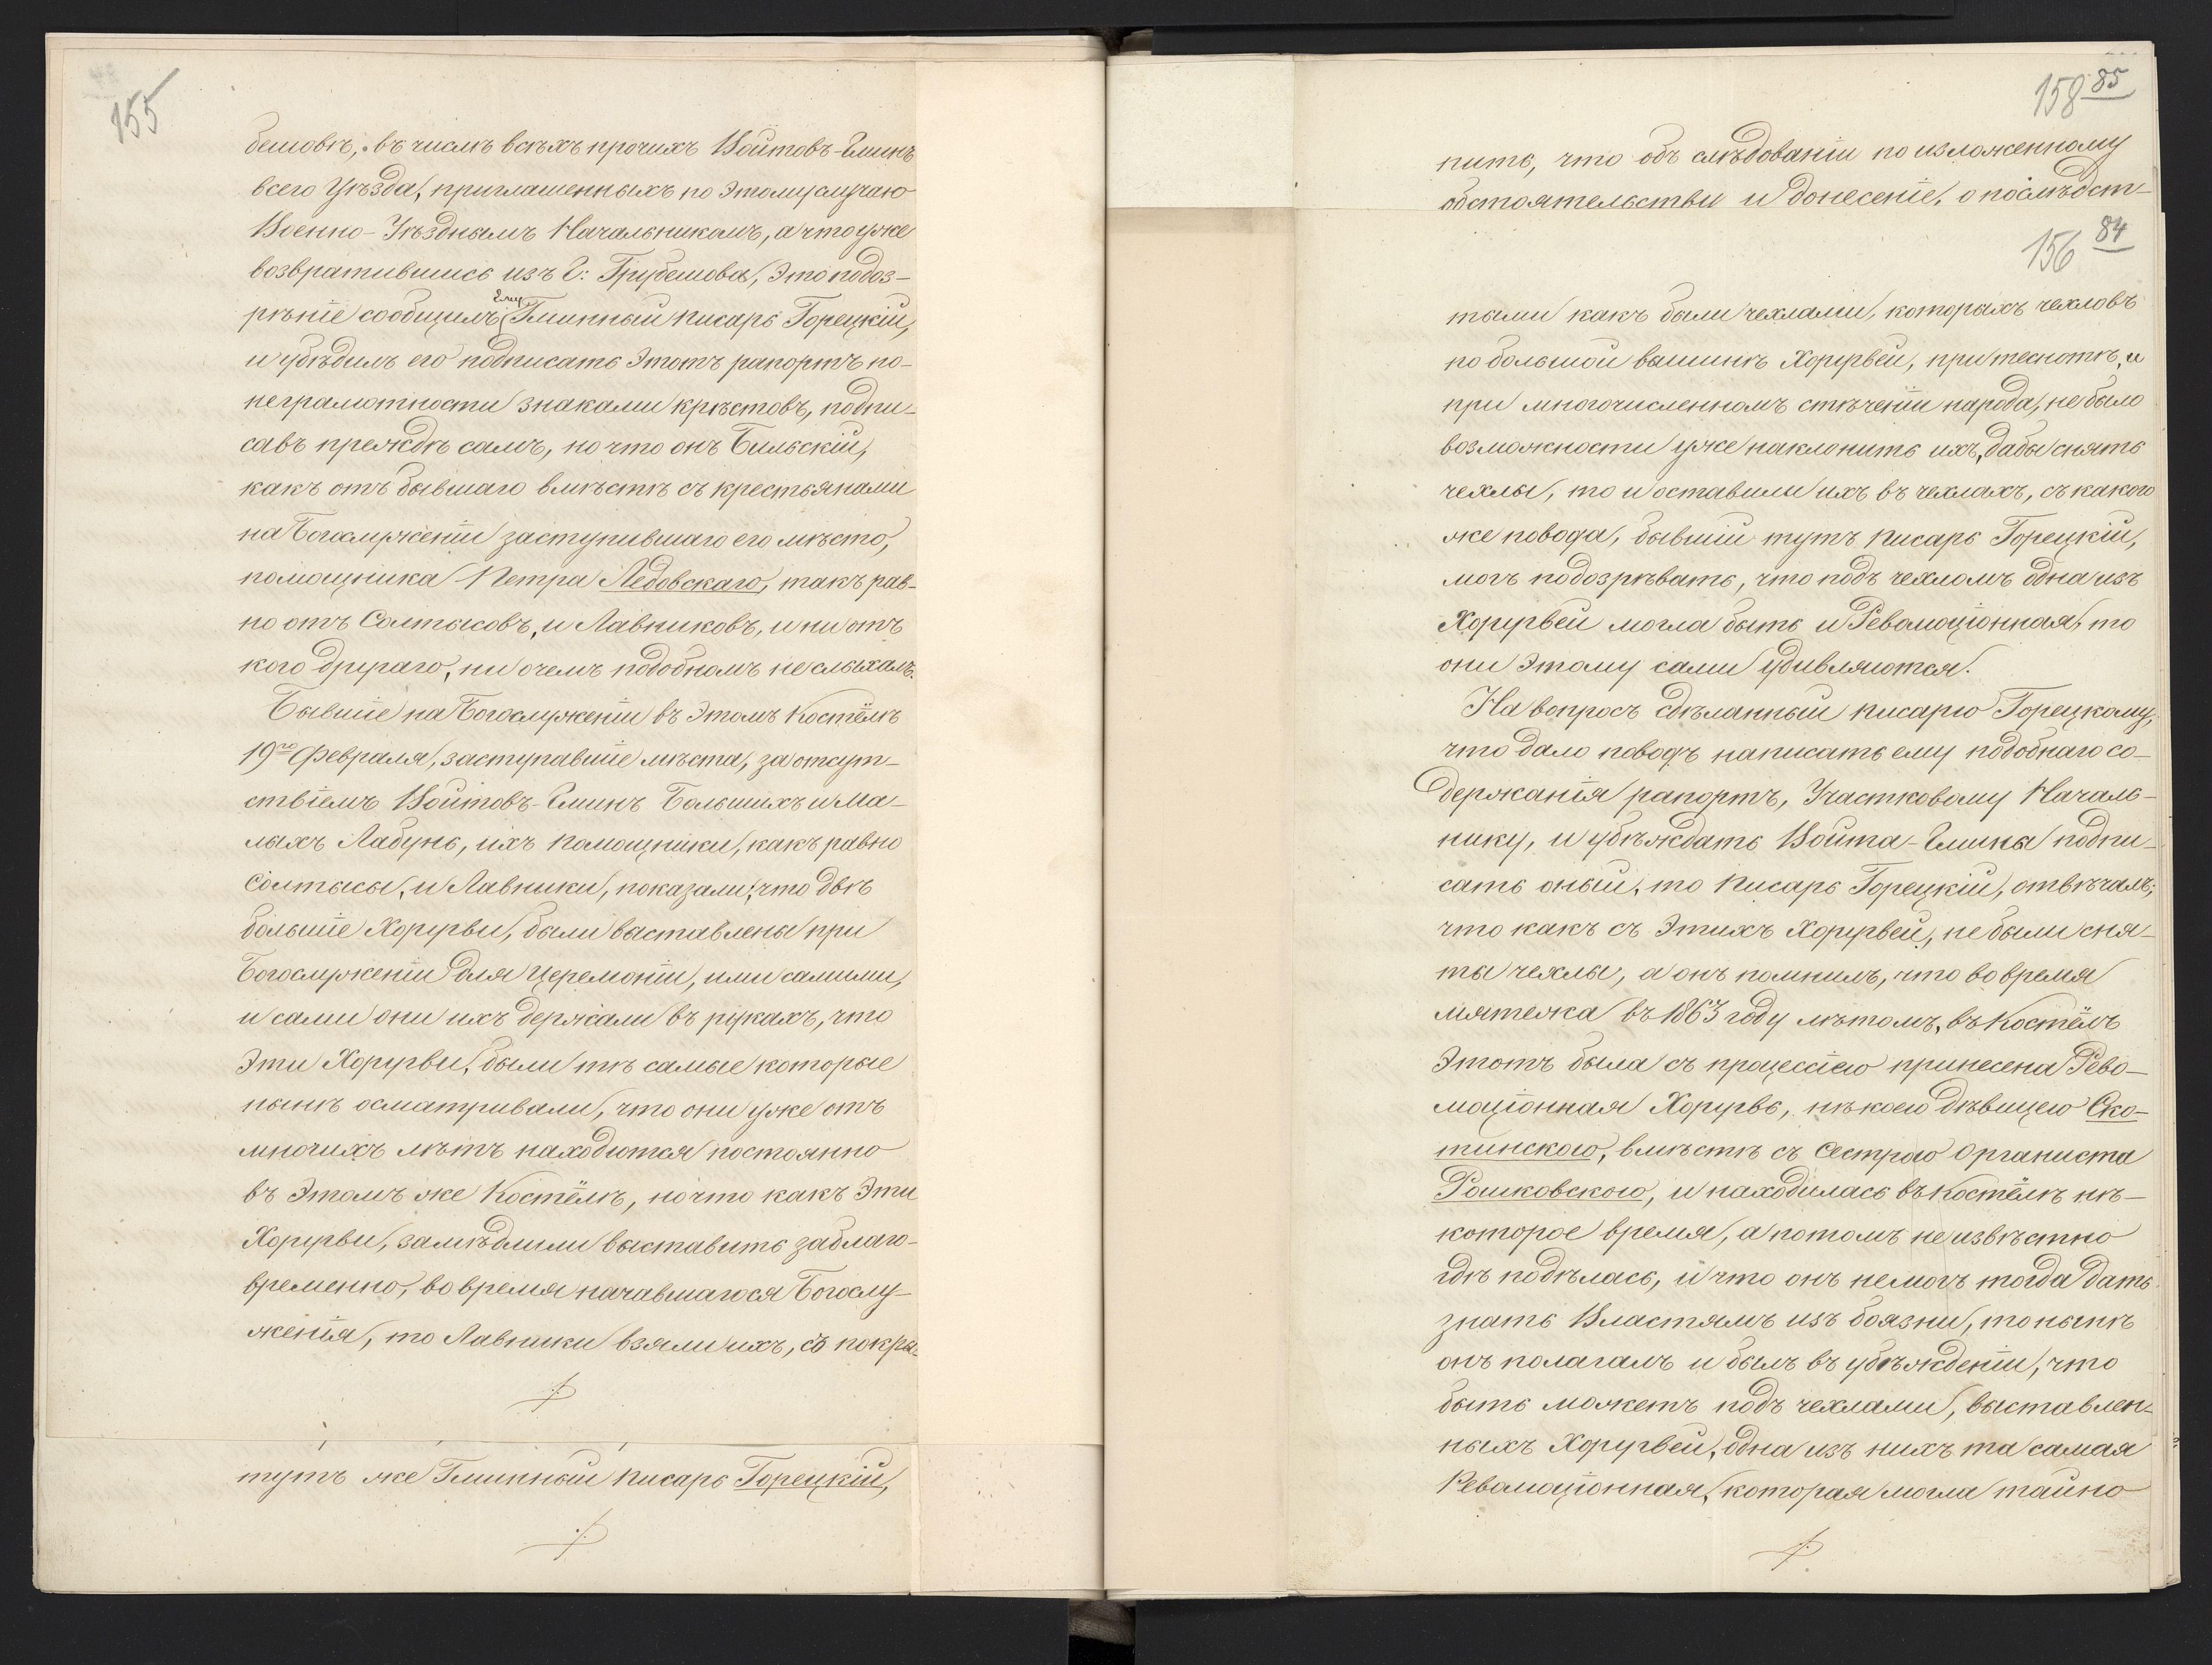 155
бешовѣ, въ числѣ всѣхъ прочихъ Войтовъ-Гминъ
всего Уѣзда, приглашенныхъ по этому случаю
Военно-Уѣзднымъ Начальникомъ, а что уже
возвратившись изъ Г: Грубешова, это подоз-
рѣніе сообщилъ Ему Гминный писарь Горецкій,
и убѣдилъ его подписать этотъ рапортъ по-
неграмотности знаками крѣстовъ, подпи-
савъ преждѣ самъ, но что онъ Бильскій,
какъ отъ бывшаго вмѣстѣ съ крестьянами
на Богослуженіи заступившаго его мѣсто,
помощника Петра Ледовскаго, такъ рав-
но отъ Солтысовъ, и Лавниковъ, и ни отъ
кого другаго, ни о чемъ подобномъ не слыхалъ.
Бывшіе на Богослуженіи въ этомъ Костёлѣ
19го Февраля, заступавшіе мѣста, за отсут-
ствіемъ Войтовъ-Гминъ Большихъ и Ма-
лыхъ Лабунь, ихъ помощники, какъ равно
Солтысы, и Лавники, показали; что двѣ
большіе Хоругви, были выставлены при
Богослуженіи для церемоніи, ими самими,
и сами они ихъ держали въ рукахъ, что
эти Хоругви, были тѣ самые которые
нынѣ осматривали, что они уже отъ
многихъ лѣтъ находются постоянно
въ этомъ же Костёлѣ, но что какъ эти
Хоругви, замѣдлили выставить заблаго-
временно, во время начавшагося Богослу-
женія, то Лавники взяли ихъ, съ покры-
тутъ же Гминный писарь Горецкій,
158 85
пить, что объ слѣдованіи по изложенному
обстоятельстви и донесеніе, о послѣдст-
156 84
тыми какъ были чехлами, которыхъ чехловъ
по большой вышинѣ Хоругвей, при теснотѣ, и
при многочисленномъ стѣченіи народа, не было
возможности уже наклонить ихъ, дабы снять
чехлы, то и оставили ихъ въ чехлахъ, съ какого
же повода, бывшій тутъ писарь Горецкій,
могъ подозрѣвать, что подъ чехломъ одна изъ
Хоругвей могла быть и Революціонная, то
они этому сами удивляются.
На вопросъ сдѣланный писарю Горецкому,
что дало поводъ написать ему подобнаго со-
держанія рапортъ, Участковому Началь-
нику, и убѣждать Войта-Гмина подпи-
сать оный, то писарь Горецкій, отвѣчалъ;
что какъ съ этихъ Хоругвей, не были сня-
ты чехлы, а онъ помнилъ, что во время
мятежа въ 1863 году лѣтомъ, въ Костёлъ
этотъ была съ процессіею принесена Рево-
люціонная Хоругвь, нѣкоею дѣвицею Ско-
тинскою, вмѣстѣ съ Сестрою Органиста
Рошковскою, и находилась въ Костёлѣ нѣ-
которое время, а потомъ неизвѣстно
гдѣ подѣлась, и что онъ не могъ тогда дать
знать Властямъ изъ боязни, то нынѣ
онъ полагалъ и былъ въ убѣжденіи, что
быть можетъ подъ чехлами, выставлен-
ныхъ Хоругвей, одна изъ нихъ та самая
Революціонная, которая могла тайно